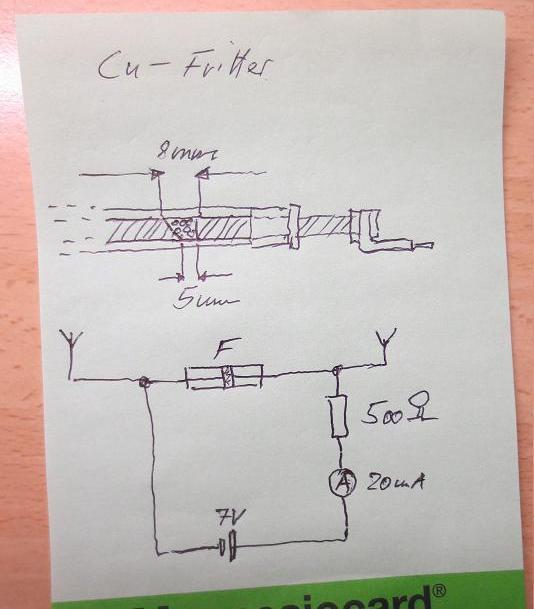 Cu-Fritter
8mm
5mm
F
500Ω
A 20mA
7V